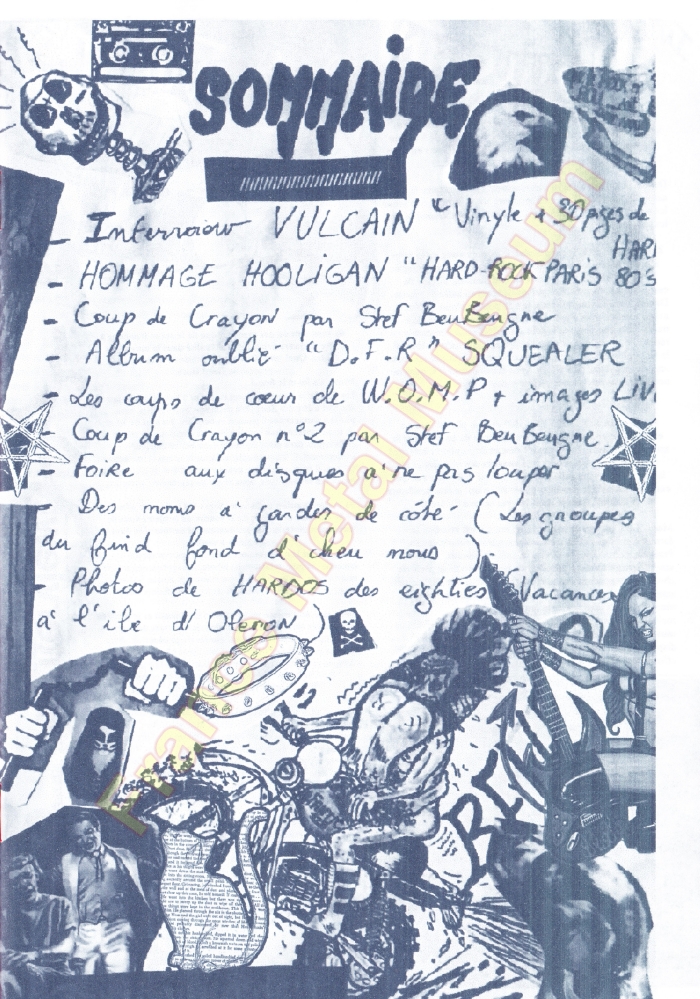 SOMMAIRE
- Interview VULCAIN "Vinyle + 30 pages de
HARD
- HOMMAGE HOOLIGAN "HARD-ROCK PARIS 80's
- Coup de Crayon par Stef BeuBeugne
- Album oublié "D.F.R" SQUEALER
- Les coups de coeur de W.O.M.P + images LIV
- Coup de Crayon n°2 par Stef BeuBeugne.
- Foire aux disques à ne pas louper
- Des noms à garder de côté (Les groupes
du find fond d'cheu nous)
- Photos de HARDOS des eighties (Vacances
à l'ile d'Oleron)
France Metal Museum